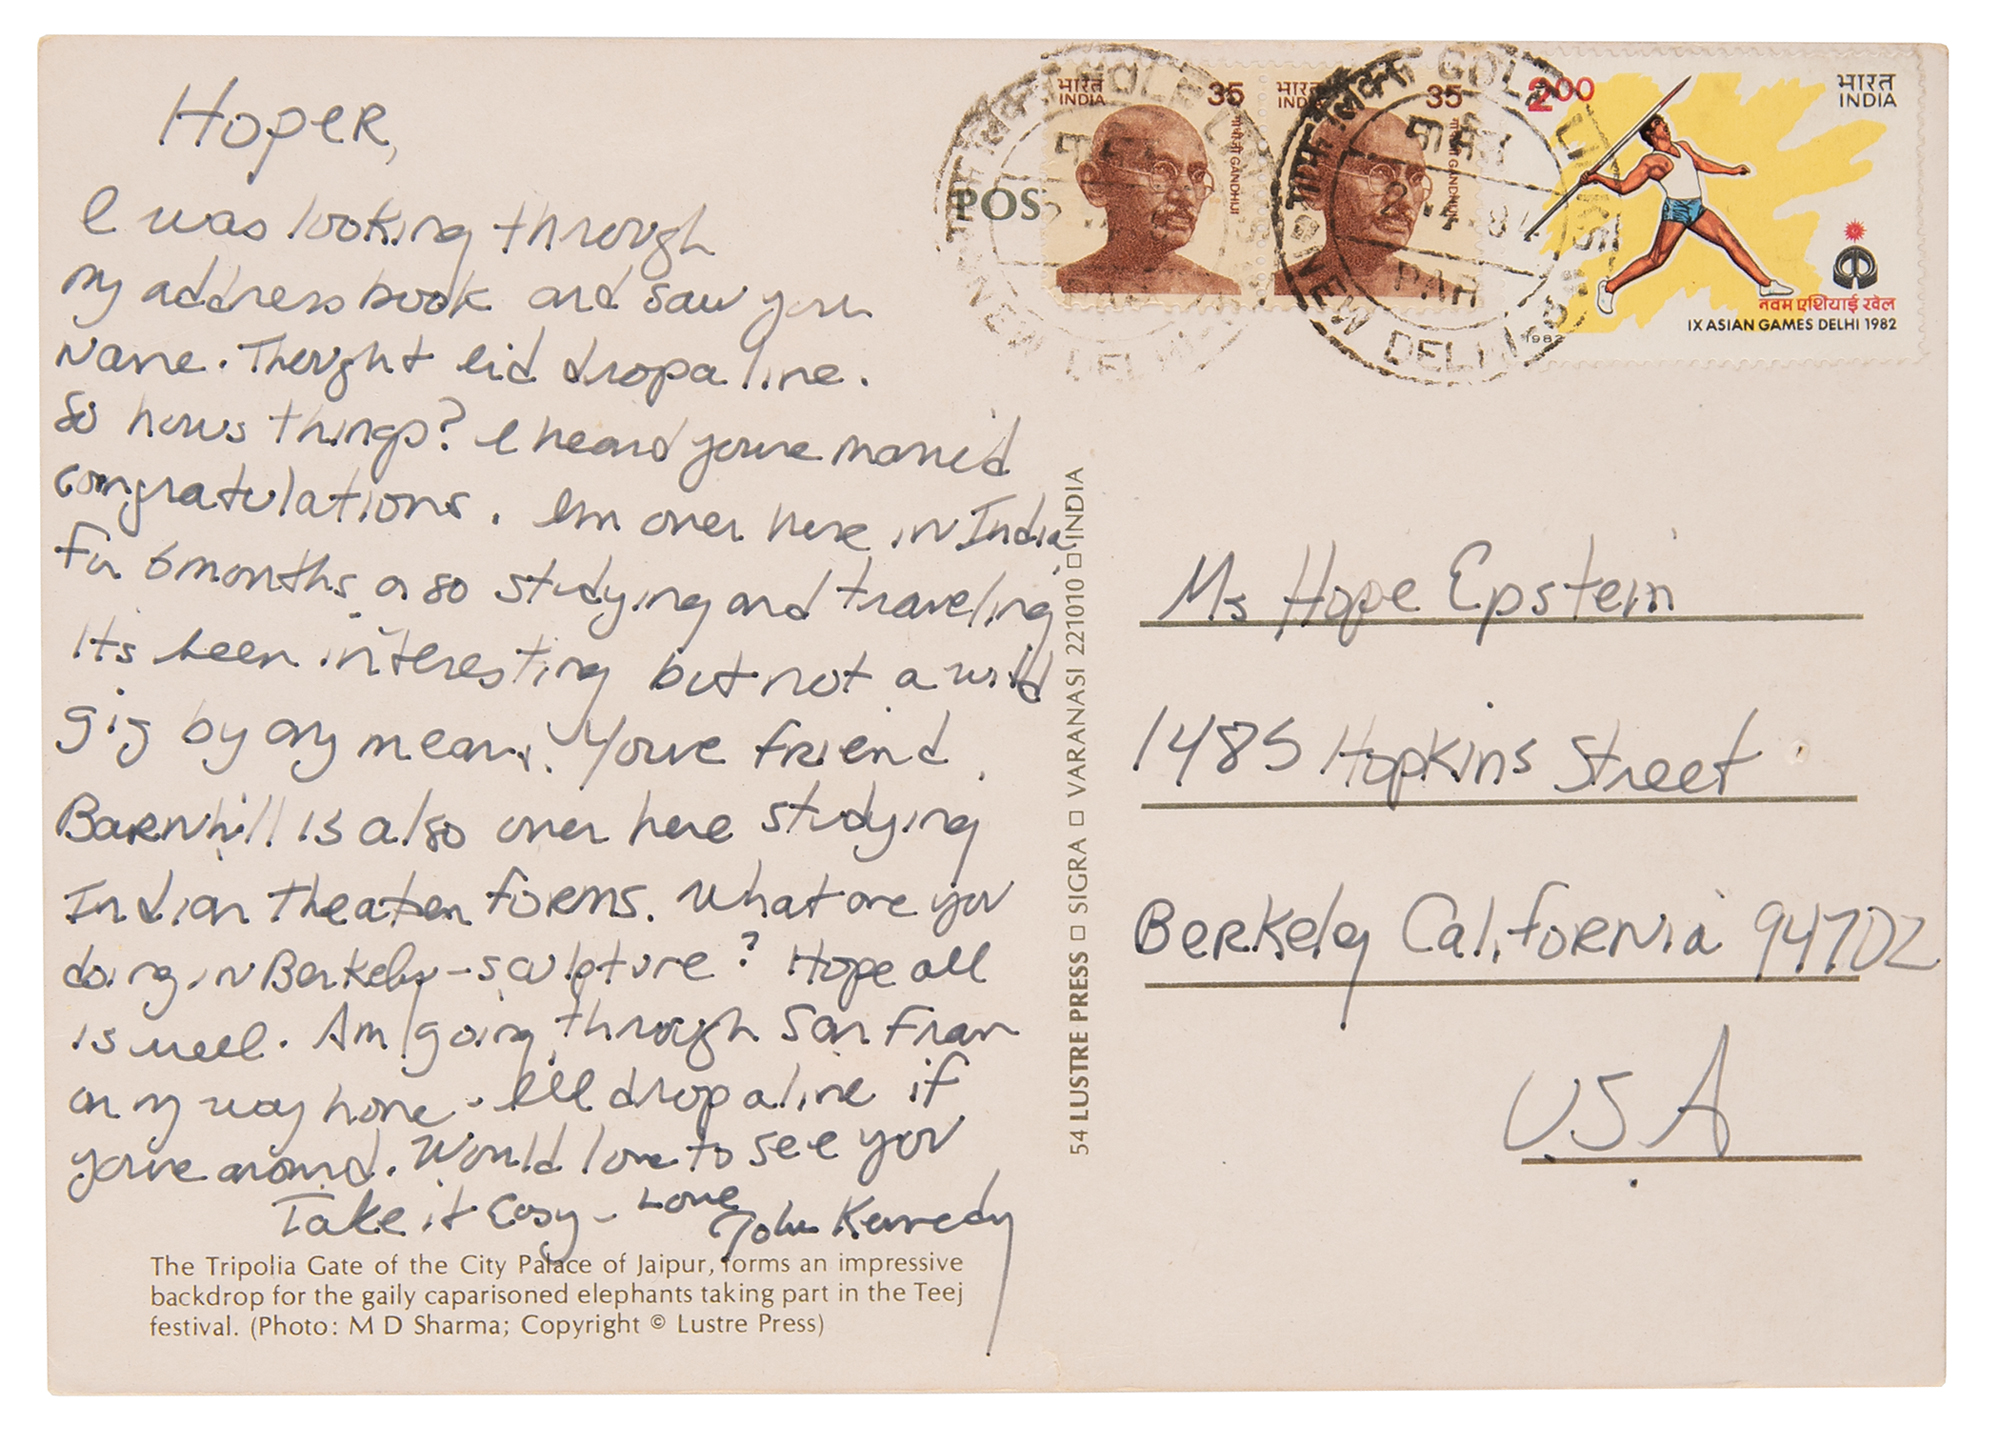 Hoper,
I was looking through
my address book and saw your
name. Thought I'd drop a line.
So hows things? I heard youve married
congratulations. Im over here in India
for 6 months or so studying and traveling
Its been interesting but not a wild
gig by any means. Youve friend
Barnhill is also over here studying
Indian theater forms. What are you
doing in Berkeley - sculpture? Hope all
is well. Am going through San Fran
on my way home - Ill drop a line if
youre around. Would love to see you
Take it Easy - Love
John Kennedy
The Tripolia Gate of the City Palace of Jaipur, forms an impressive
backdrop for the gaily caparisoned elephants taking part in the Teej
festival. (Photo: M D Sharma; Copyright © Lustre Press)
54 LUSTRE PRESS □ SIGRA □ VARANASI 221010 □ INDIA
POS
भारत
INDIA
35
गांधीजी GANDHIJI
भारत
INDIA
35
GANDHIJI
2.00
भारत
INDIA
नवम एशियाई खेल
IX ASIAN GAMES DELHI 1982
1982
GOLF LINKS
NEW DELHI
GOLF LINKS
NEW DELHI
Ms Hope Epstein
1485 Hopkins Street
Berkeley California 94702
USA